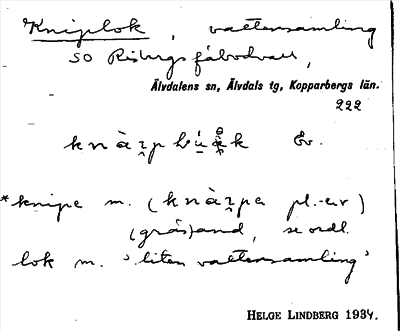 Kniplok, vattensamling
SO Risbergs fäbodvall,
Älvdalens sn, Älvdals tg, Kopparbergs län.
222
Ev.
*knipe m. ( pl. -er)
(gräs)and, se ordl.
lok m. 'liten vattensamling'
HELGE LINDBERG 1934.